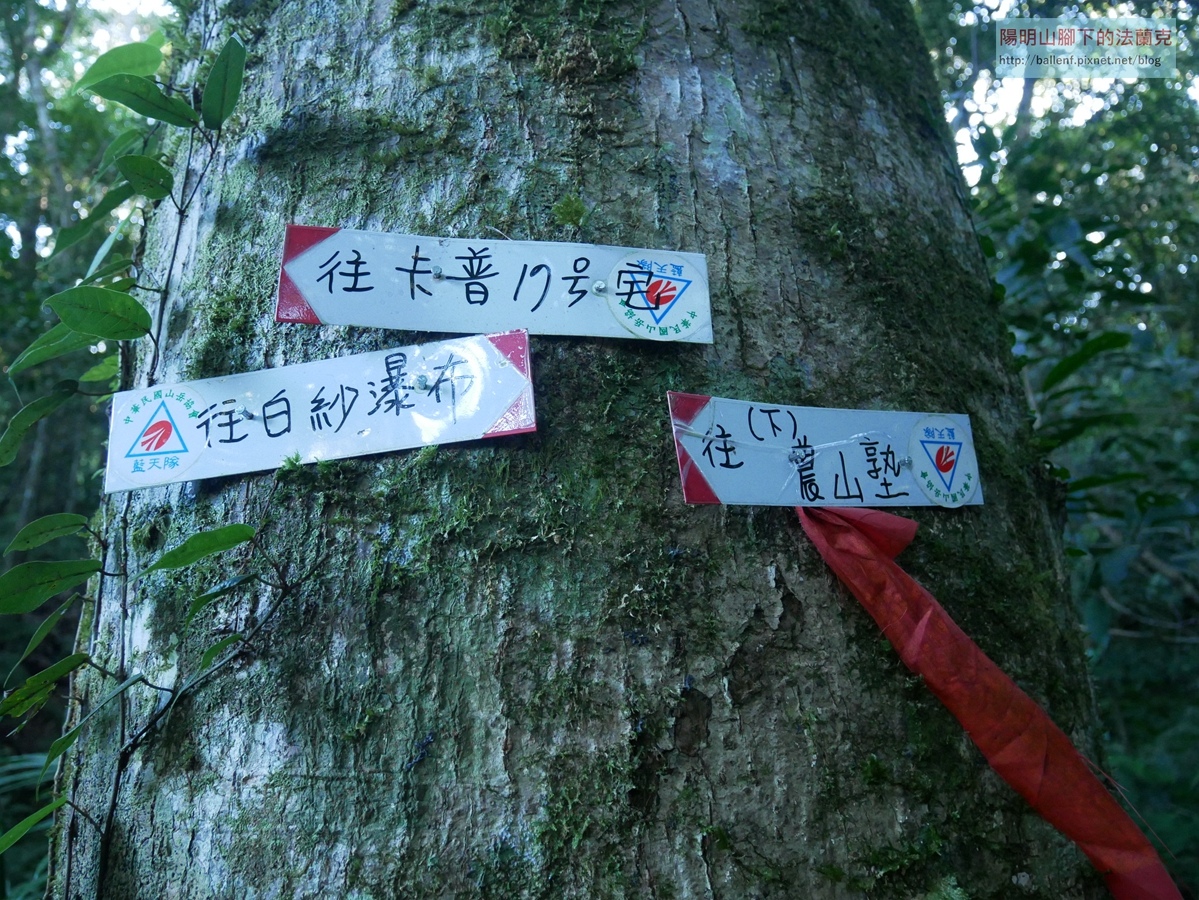 陽明山腳下的法蘭克
http://ballenf.pixnet.net/blog
往卡普17号宅
藍天隊
中華民國山岳協會
往白紗瀑布
中華民國山岳協會
藍天隊
(下)
往農山塾
藍天隊
中華民國山岳協會